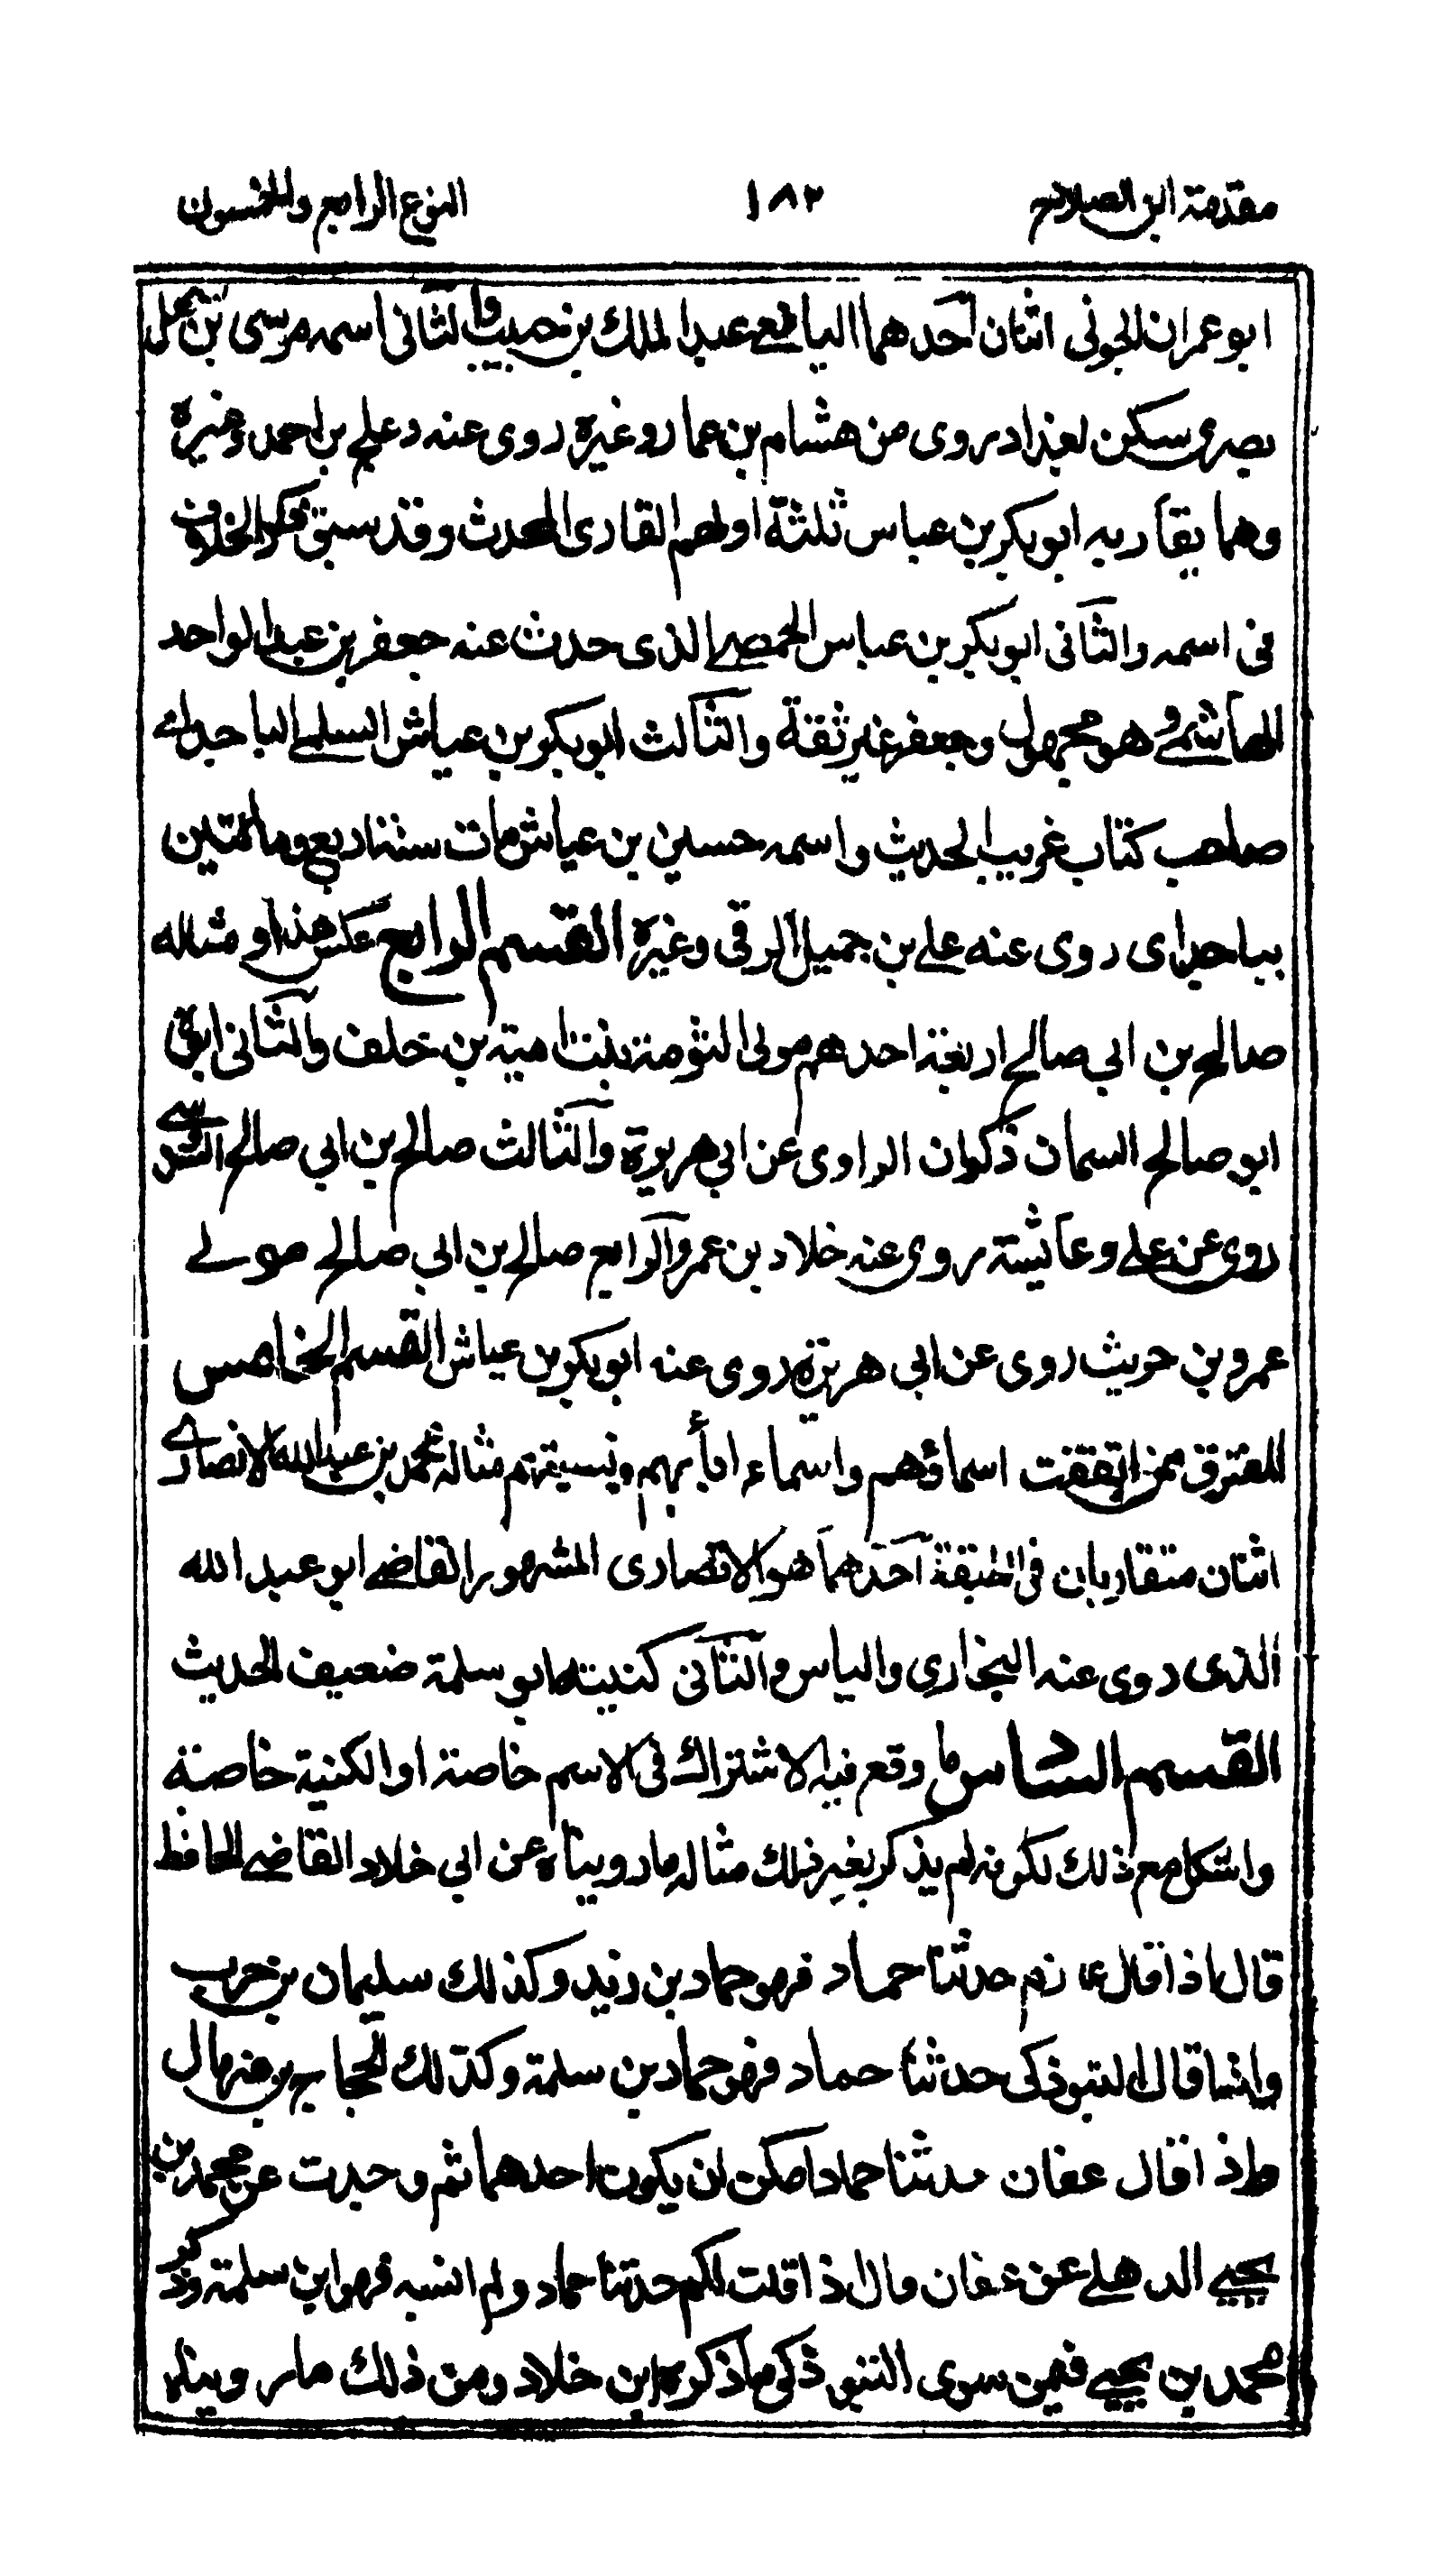 مقدمة ابن الصلاح ١٨٢ النوع الرابع والخمسون
ابو عمران الجونى اثنان احدهما التابعى عبد الملك بن حبيب والثانى اسمه موسى بن سهل
بصرى سكن بغداد روى من هشام بن عمار وغيره روى عنه دعلج بن احمد وغيره
وهما يقاربه ابو بكر بن عباس ثلثة اولهم القارى المحدث وقد سبق ذكر الخلاف
فى اسمه والثانى ابو بكر بن عباس الحمصى الذى حدث عنه جعفر بن عبد الواحد
الهاشمى وهو مجهول وجعفر غير ثقة والثالث ابو بكر بن عياش السلمى الباجدائى
صاحب كتاب غريب الحديث واسمه حسين بن عياش مات سنة اربع ومائتين
بباجداى روى عنه على بن جميل الرقى وغيره القسم الرابع عكس هذا ومثاله
صالح بن ابي صالح اربعة احدهم مولى التؤمة بنت امية بن خلف والثانى ابوه
ابو صالح السمان ذكوان الراوى عن ابي هريرة والثالث صالح بن ابي صالح السدسى
روى عن على وعائشة روى عنه خلاد بن عمرو والرابع صالح بن ابي صالح مولے
عمرو بن حريث روى عن ابي هريرة روى عنه ابو بكر بن عياش القسم الخامس
المفترق ممن اتفقت اسماؤهم واسماء ابأئهم ونسبتهم مثاله محمد بن عبد الله الانصارے
اثنان متقاربان فى الطبقة احدهما هو الانصارى المشهور القاضى ابو عبد الله
الذى روى عنه البخارى والناس والثانى كنيته ابو سلمة ضعيف الحديث
القسم السادس ما وقع فيه الاشتراك فى الاسم خاصة او الكنية خاصة
واشكل مع ذلك لكونه لم يذكر بغير ذلك مثاله ما رويناه عن ابي خلاد القاضى الحافظ
قال اذا قال عارم حدثنا حماد فهو حماد بن زيد وكذلك سليمان بن حرب
واذا قال التبوذكى حدثنا حماد فهو حماد بن سلمة وكذلك الحجاج بن منهال
واذا قال عفان حدثنا حماد امكن ان يكون احدهما ثم وجدت عن محمد بن
يحيى الذهلى عن عفان قال اذا قلت لكم حدثنا حماد ولم انسبه فهو ابن سلمة وذكر
محمد بن يحيى فيمن سوى التبوذكى ما ذكره ابن خلاد ومن ذلك ما روينا